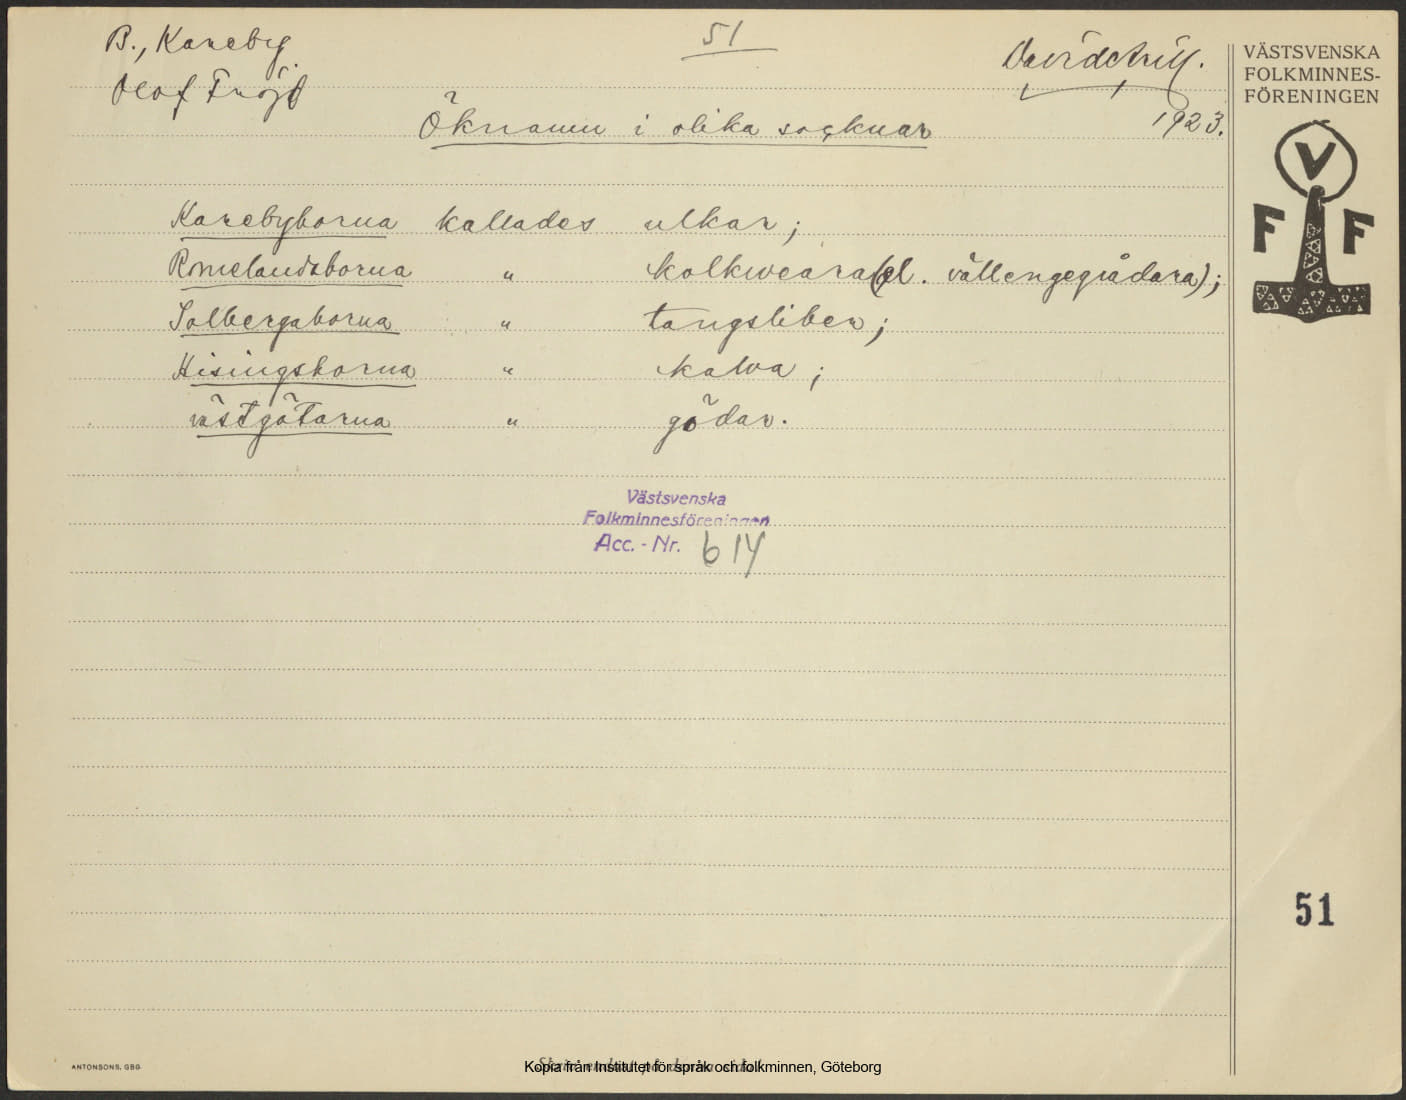 B., Kareby
51
Olof Fröjd
1923.
VÄSTSVENSKA
FOLKMINNES-
FÖRENINGEN
V
F F
Öknamn i olika socknar
Karebyborna kallades ulkar;
Romelandsborna " kolkweara (el. vällengegrådara);
Solbergaborna " tangsliber;
Hisingsborna " kalva;
västgötarna " gödar.
Västsvenska
Folkminnesföreningen
Acc. - Nr. 614
51
ANTONSONS, GBG
Kopia från Institutet för språk och folkminnen, Göteborg